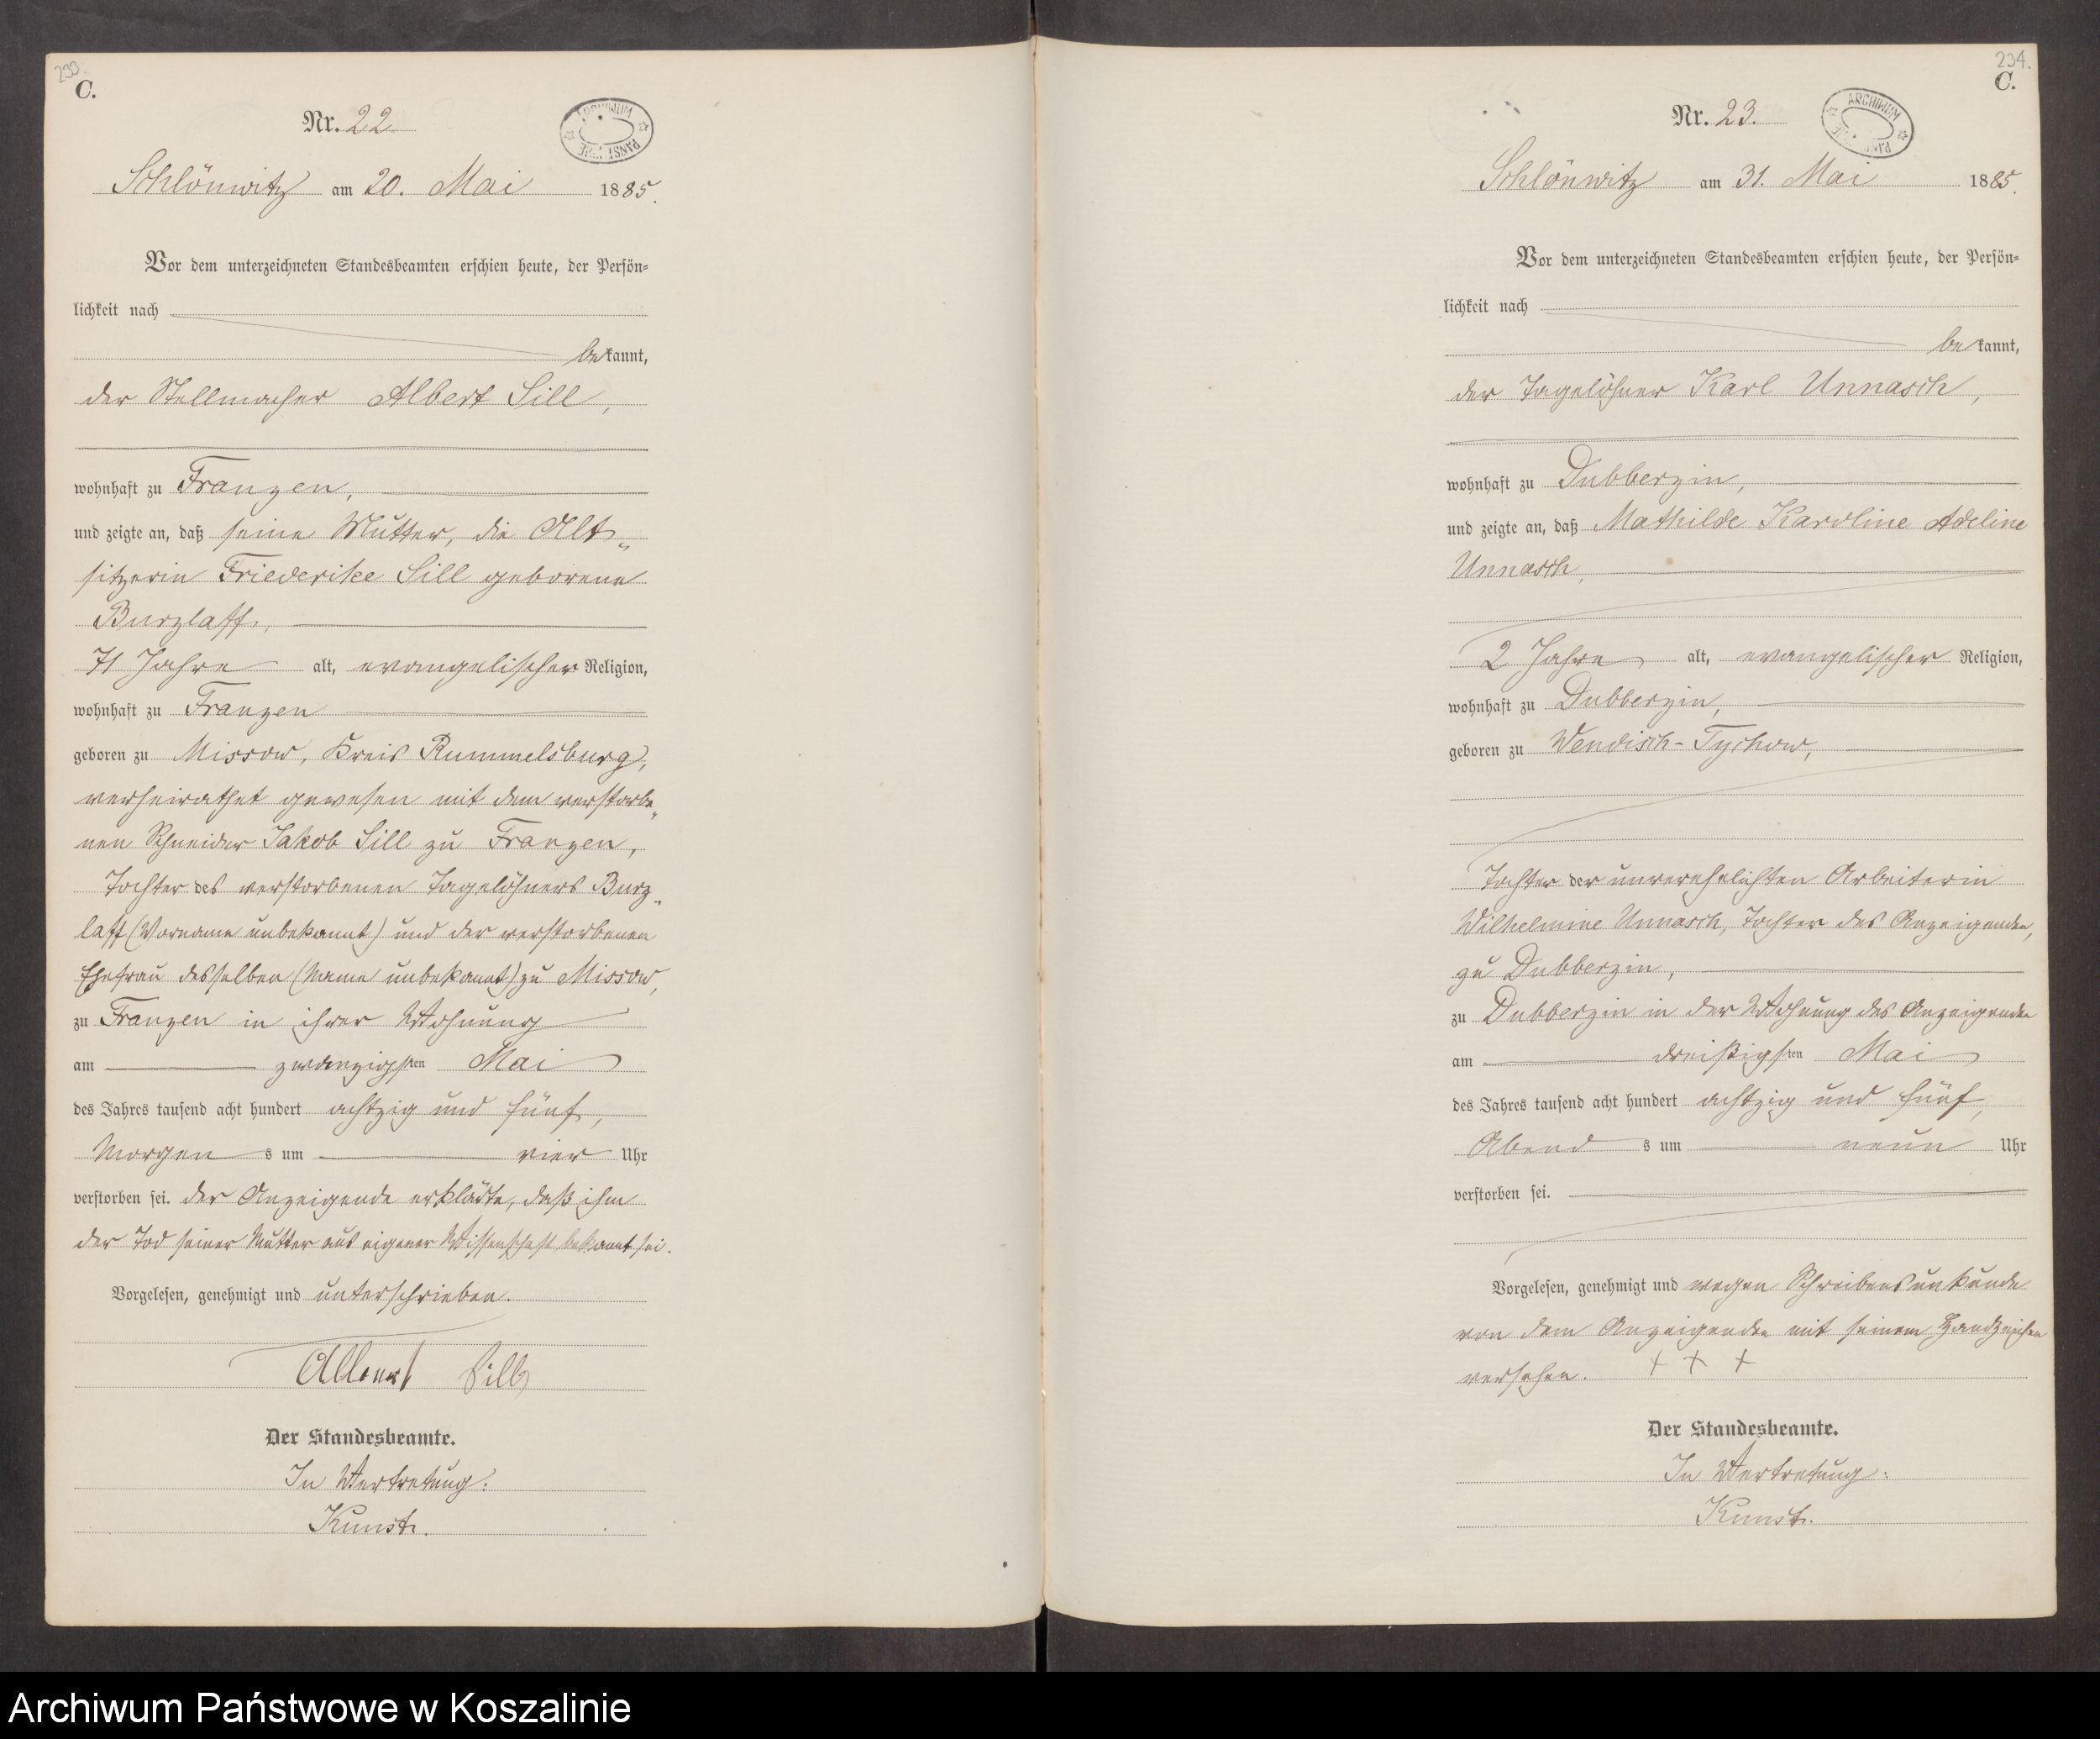 233.
C.
Nr. 22
ARCHIWUM PAŃSTWOWE
Schlönwitz am 20. Mai 1885.
Vor dem unterzeichneten Standesbeamten erschien heute, der Persön-
lichkeit nach
bekannt,
der Stellmacher Albert Sill,
wohnhaft zu Franzen,
und zeigte an, daß seine Mutter, die Alt-
sitzerin Friederike Sill geborene
Burzlaff,
71 Jahre alt, evangelischer Religion,
wohnhaft zu Franzen
geboren zu Missow, Kreis Rummelsburg,
verheirathet gewesen mit dem verstorbe-
nen Schneider Jakob Sill zu Franzen,
Tochter des verstorbenen Tagelöhners Burz-
laff (Vorname unbekannt) und der verstorbenen
Ehefrau desselben (Name unbekannt) zu Missow,
zu Franzen in ihrer Wohnung
am zwanzigsten Mai
des Jahres tausend acht hundert achtzig und fünf,
Morgens um vier Uhr
verstorben sei. Der Anzeigende erklärte, daß ihm
der Tod seiner Mutter aus eigener Wissenschaft bekannt sei.
Vorgelesen, genehmigt und unterschrieben.
Albert Sill
Der Standesbeamte.
In Vertretung:
Kunst.
234.
C.
Nr. 23.
ARCHIWUM PAŃSTWOWE
Schlönwitz am 31. Mai 1885.
Vor dem unterzeichneten Standesbeamten erschien heute, der Persön-
lichkeit nach
bekannt,
der Tagelöhner Karl Unnasch,
wohnhaft zu Dubberzin,
und zeigte an, daß Mathilde Karoline Adeline
Unnasch,
2 Jahre alt, evangelischer Religion,
wohnhaft zu Dubberzin,
geboren zu Wendisch-Tychow,
Tochter der unverehelichten Arbeiterin
Wilhelmine Unnasch, Tochter des Anzeigenden,
zu Dubberzin,
zu Dubberzin in der Wohnung des Anzeigenden
am dreißigsten Mai
des Jahres tausend acht hundert achtzig und fünf,
Abends um neun Uhr
verstorben sei.
Vorgelesen, genehmigt und wegen Schreibensunkunde
von dem Anzeigenden mit seinem Handzeichen
versehen. + + +
Der Standesbeamte.
In Vertretung:
Kunst.
Archiwum Państwowe w Koszalinie